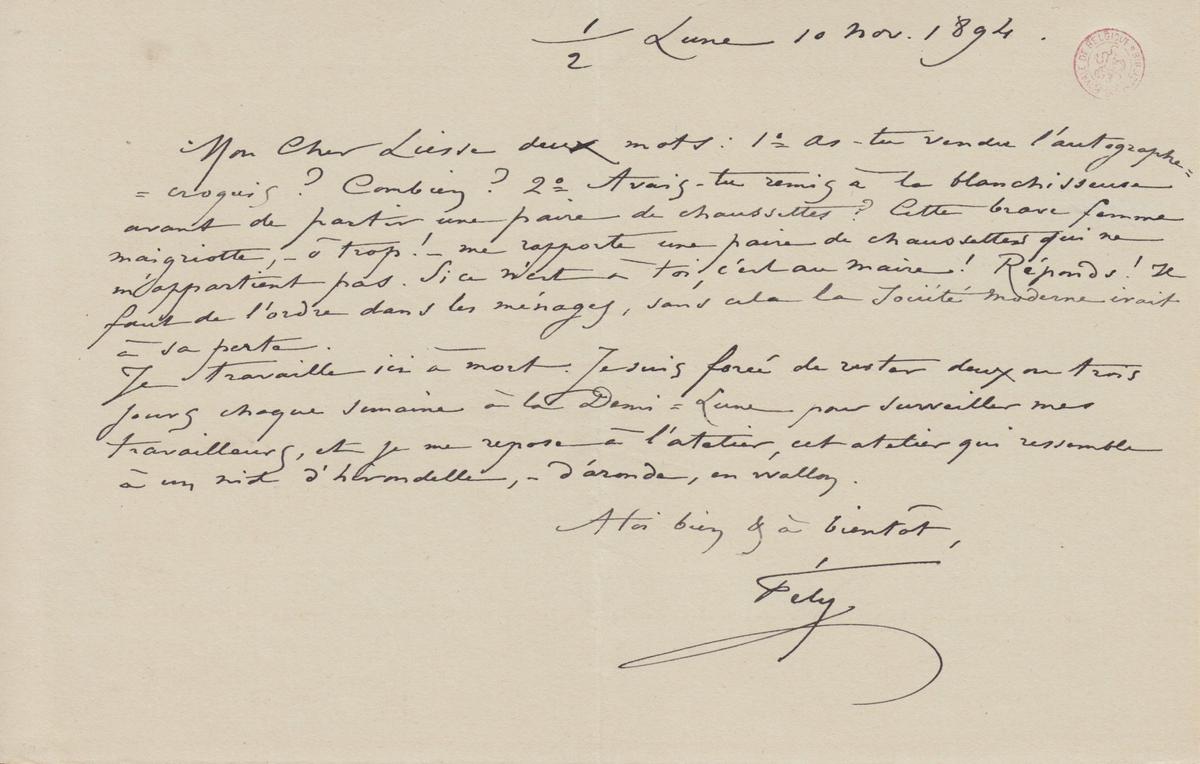 1/2 Lune 10 Nov. 1894.
Mon Cher Liesse deux mots : 1º As-tu vendu l'autographe=
=croquis ? Combien ? 2º Avais-tu remis à la blanchisseuse
avant de partir une paire de chaussettes ? Cette brave femme
maigriotte, – ô trop ! – me rapporte une paire de chaussettes qui ne
m'appartient pas. Si ce n'est à toi, c'est au maire ! Réponds ! Il
faut de l'ordre dans les ménages, sans cela la Société moderne irait
à sa perte.
Je travaille ici à mort. Je suis forcé de rester deux ou trois
jours chaque semaine à la Demi=Lune pour surveiller mes
travailleurs, et je me repose à l'atelier, cet atelier qui ressemble
à un nid d'hirondelle, – d'aronde, en wallon.
A toi bien & à bientôt,
Fély